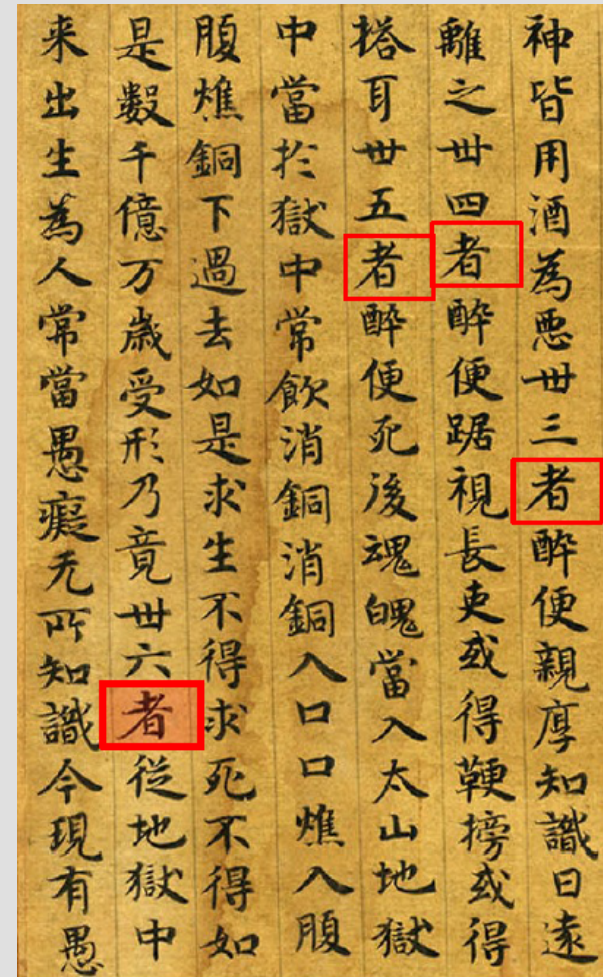 神皆用酒為悪丗三者醉便親厚知識日遠
離之丗四者醉便踞視長吏或得鞕搒或得
搭耳丗五者醉便死後魂魄當入太山地獄
中當扵獄中常飲消銅消銅入口口燋入腹
腹燋銅下過去如是求生不得求死不得如
是數千億万歳受形乃竟丗六者従地獄中
来出生為人常當愚癡无所知識今現有愚